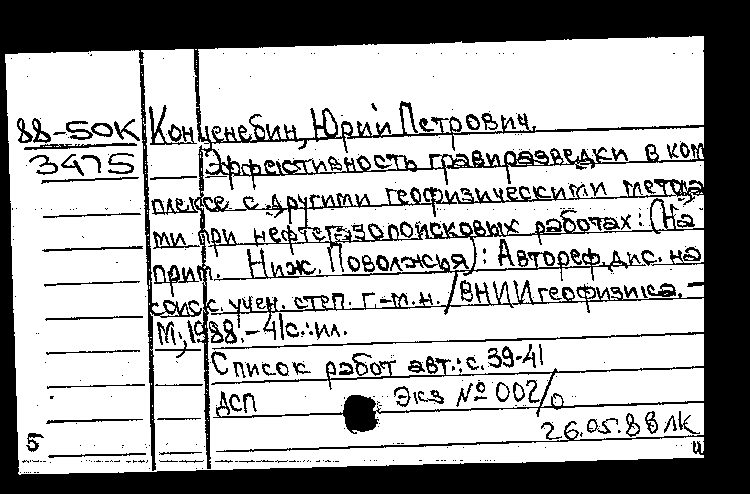 88-50К Конценебин, Юрий Петрович.
3475 Эффективность гравиразведки в ком
плексе с другими геофизическими метода
ми при нефтегазопоисковых работах: (На
прим. Ниж. Поволжья): Автореф. дис. на
соиск. учен. степ. г.-м.н. / ВНИИгеофизика. -
М., 1988. - 41с.: ил.
Список работ авт.: с. 39-41
ДСП Экз № 002/0
26.05.88 ЛК
5